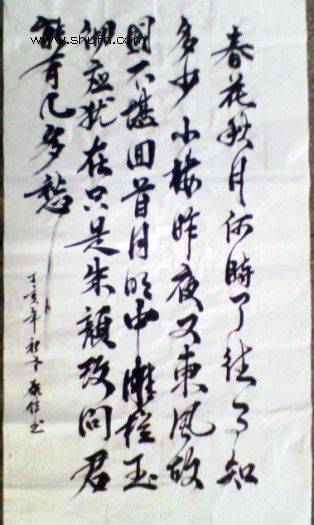 www.shufa.com
春花秋月何時了往事知
多少小楼昨夜又東風故
国不堪回首月明中雕栏玉
砌应犹在只是朱顔改问君
能有几多愁
丁亥年初夏书